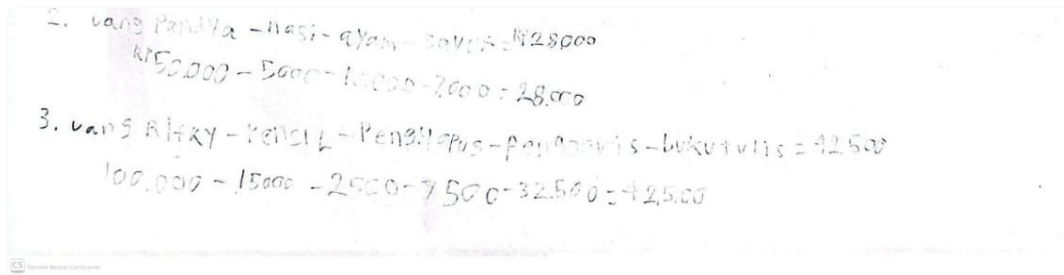 2. uang Pandya - nasi - ayam - sayur = Rp 28000
Rp 50.000 - 5000 - 10.000 - 7000 = 28.000
3. uang Rifky - Pensil - Penghapus - Penggaris - buku tulis = 42.500
100.000 - 15000 - 2500 - 7500 - 32.500 = 42.500
CS